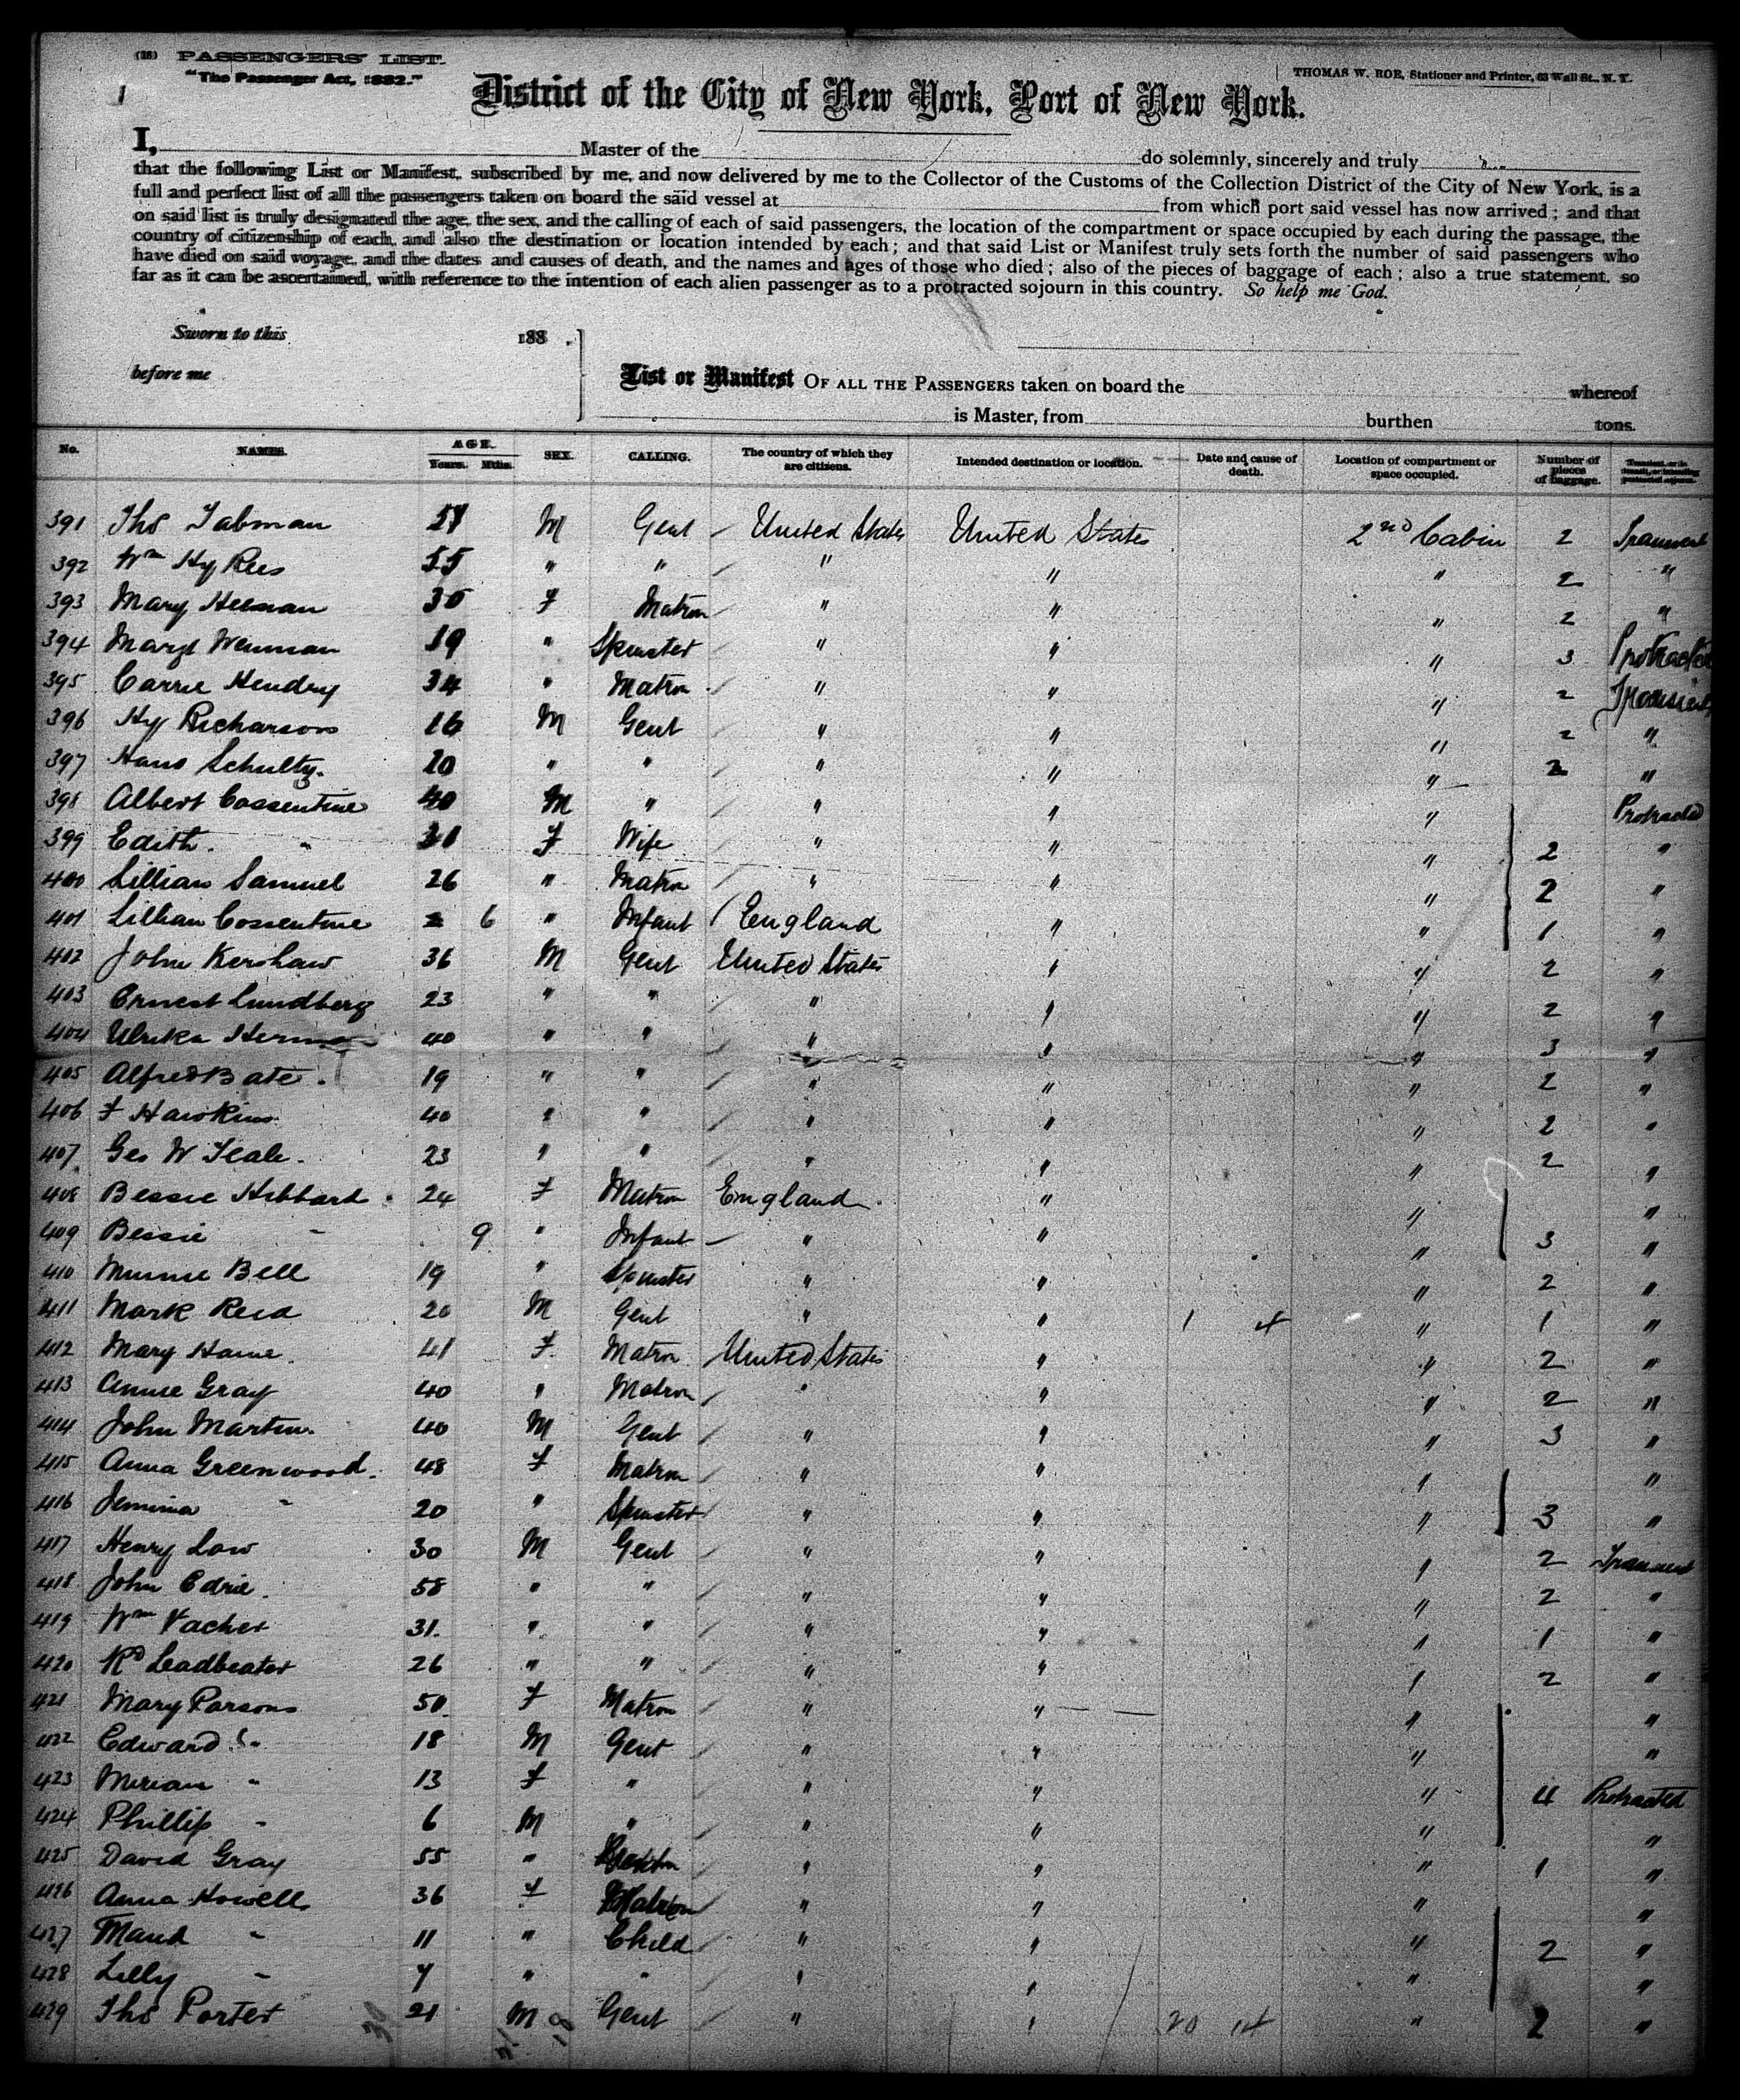 (18) PASSENGERS' LIST.
"The Passenger Act, 1882."
THOMAS W. ROE, Stationer and Printer, 63 Wall St., N. Y.
District of the City of New York, Port of New York.
I, Master of the do solemnly, sincerely and truly
that the following List or Manifest, subscribed by me, and now delivered by me to the Collector of the Customs of the Collection District of the City of New York, is a
full and perfect list of all the passengers taken on board the said vessel at from which port said vessel has now arrived; and that
on said list is truly designated the age, the sex, and the calling of each of said passengers, the location of the compartment or space occupied by each during the passage, the
country of citizenship of each, and also the destination or location intended by each; and that said List or Manifest truly sets forth the number of said passengers who
have died on said voyage, and the dates and causes of death, and the names and ages of those who died; also of the pieces of baggage of each; also a true statement, so
far as it can be ascertained, with reference to the intention of each alien passenger as to a protracted sojourn in this country. So help me God.
Sworn to this 188 .
before me
List or Manifest OF ALL THE PASSENGERS taken on board the whereof
is Master, from burthen tons.
No. NAMES. AGE. Years. Mths. SEX. CALLING. The country of which they are citizens. Intended destination or location. Date and cause of death. Location of compartment or space occupied. Number of pieces of baggage. Transient, or in transit, or intending protracted sojourn.
391 Thos Tabman M Gent United States United States 2nd Cabin 2 Transient
392 Wm Hy Rees 55 " " " " " 2 "
393 Mary Heenan 30 F Matron " " " 2 "
394 Mary Wenman 19 " Spinster " " " 3 Protracted
395 Carrie Hendry 34 " Matron " " " 2 Transient
396 Hy Richarson 16 M Gent " " " 2 "
397 Hans Schultz. 20 " " " " " 2 "
398 Albert Cossentine 40 M " " " " Protracted
399 Edith. " 31 F Wife " " " 2 "
400 Lillian Samuel 26 " Matron " " " 2 "
401 Lillian Cossentine 6 " Infant England " " 1 "
402 John Kershaw 36 M Gent United States " " 2 "
403 Ernest Lundberg 23 " " " " " 2 "
404 Ulrika 40 " " " " " 3 "
405 Alfred Bate. 19 " " " " " 2 "
406 F Hawkins 40 " " " " " 2 "
407 Geo W Teale. 23 " " " " " 2 "
408 Bessie Hibbard 24 F Matron England " " "
409 Bessie " 9 " Infant " " " 3 "
410 Minnie Bell 19 " Spinster " " " 2 "
411 Mark Reid 20 M Gent " " 1 4 " 1 "
412 Mary Hame 41 F Matron United States " " 2 "
413 Annie Gray 40 " Matron " " " 2 "
414 John Martin. 40 M Gent " " " 3 "
415 Anna Greenwood. 48 F Matron " " " "
416 Jemima " 20 " Spinster " " " 3 "
417 Henry Low 30 M Gent " " " 2 Transient
418 John Edrie. 58 " " " " " 2 "
419 Wm Vacher 31. " " " " " 1 "
420 Rd Leadbeater 26 " " " " " 2 "
421 Mary Parsons 50 F Matron " " " "
422 Edward " 18 M Gent " " " "
423 Miriam " 13 F " " " " 4 Protracted
424 Phillip " 6 M " " " " "
425 David Gray 55 " " " " 1 "
426 Anna Howell 36 F Matron " " " "
427 Maud " 11 " Child " " " 2 "
428 Lilly " 7 " " " " " "
429 Thos Porter 21 M Gent " " 20 14 " 2 "